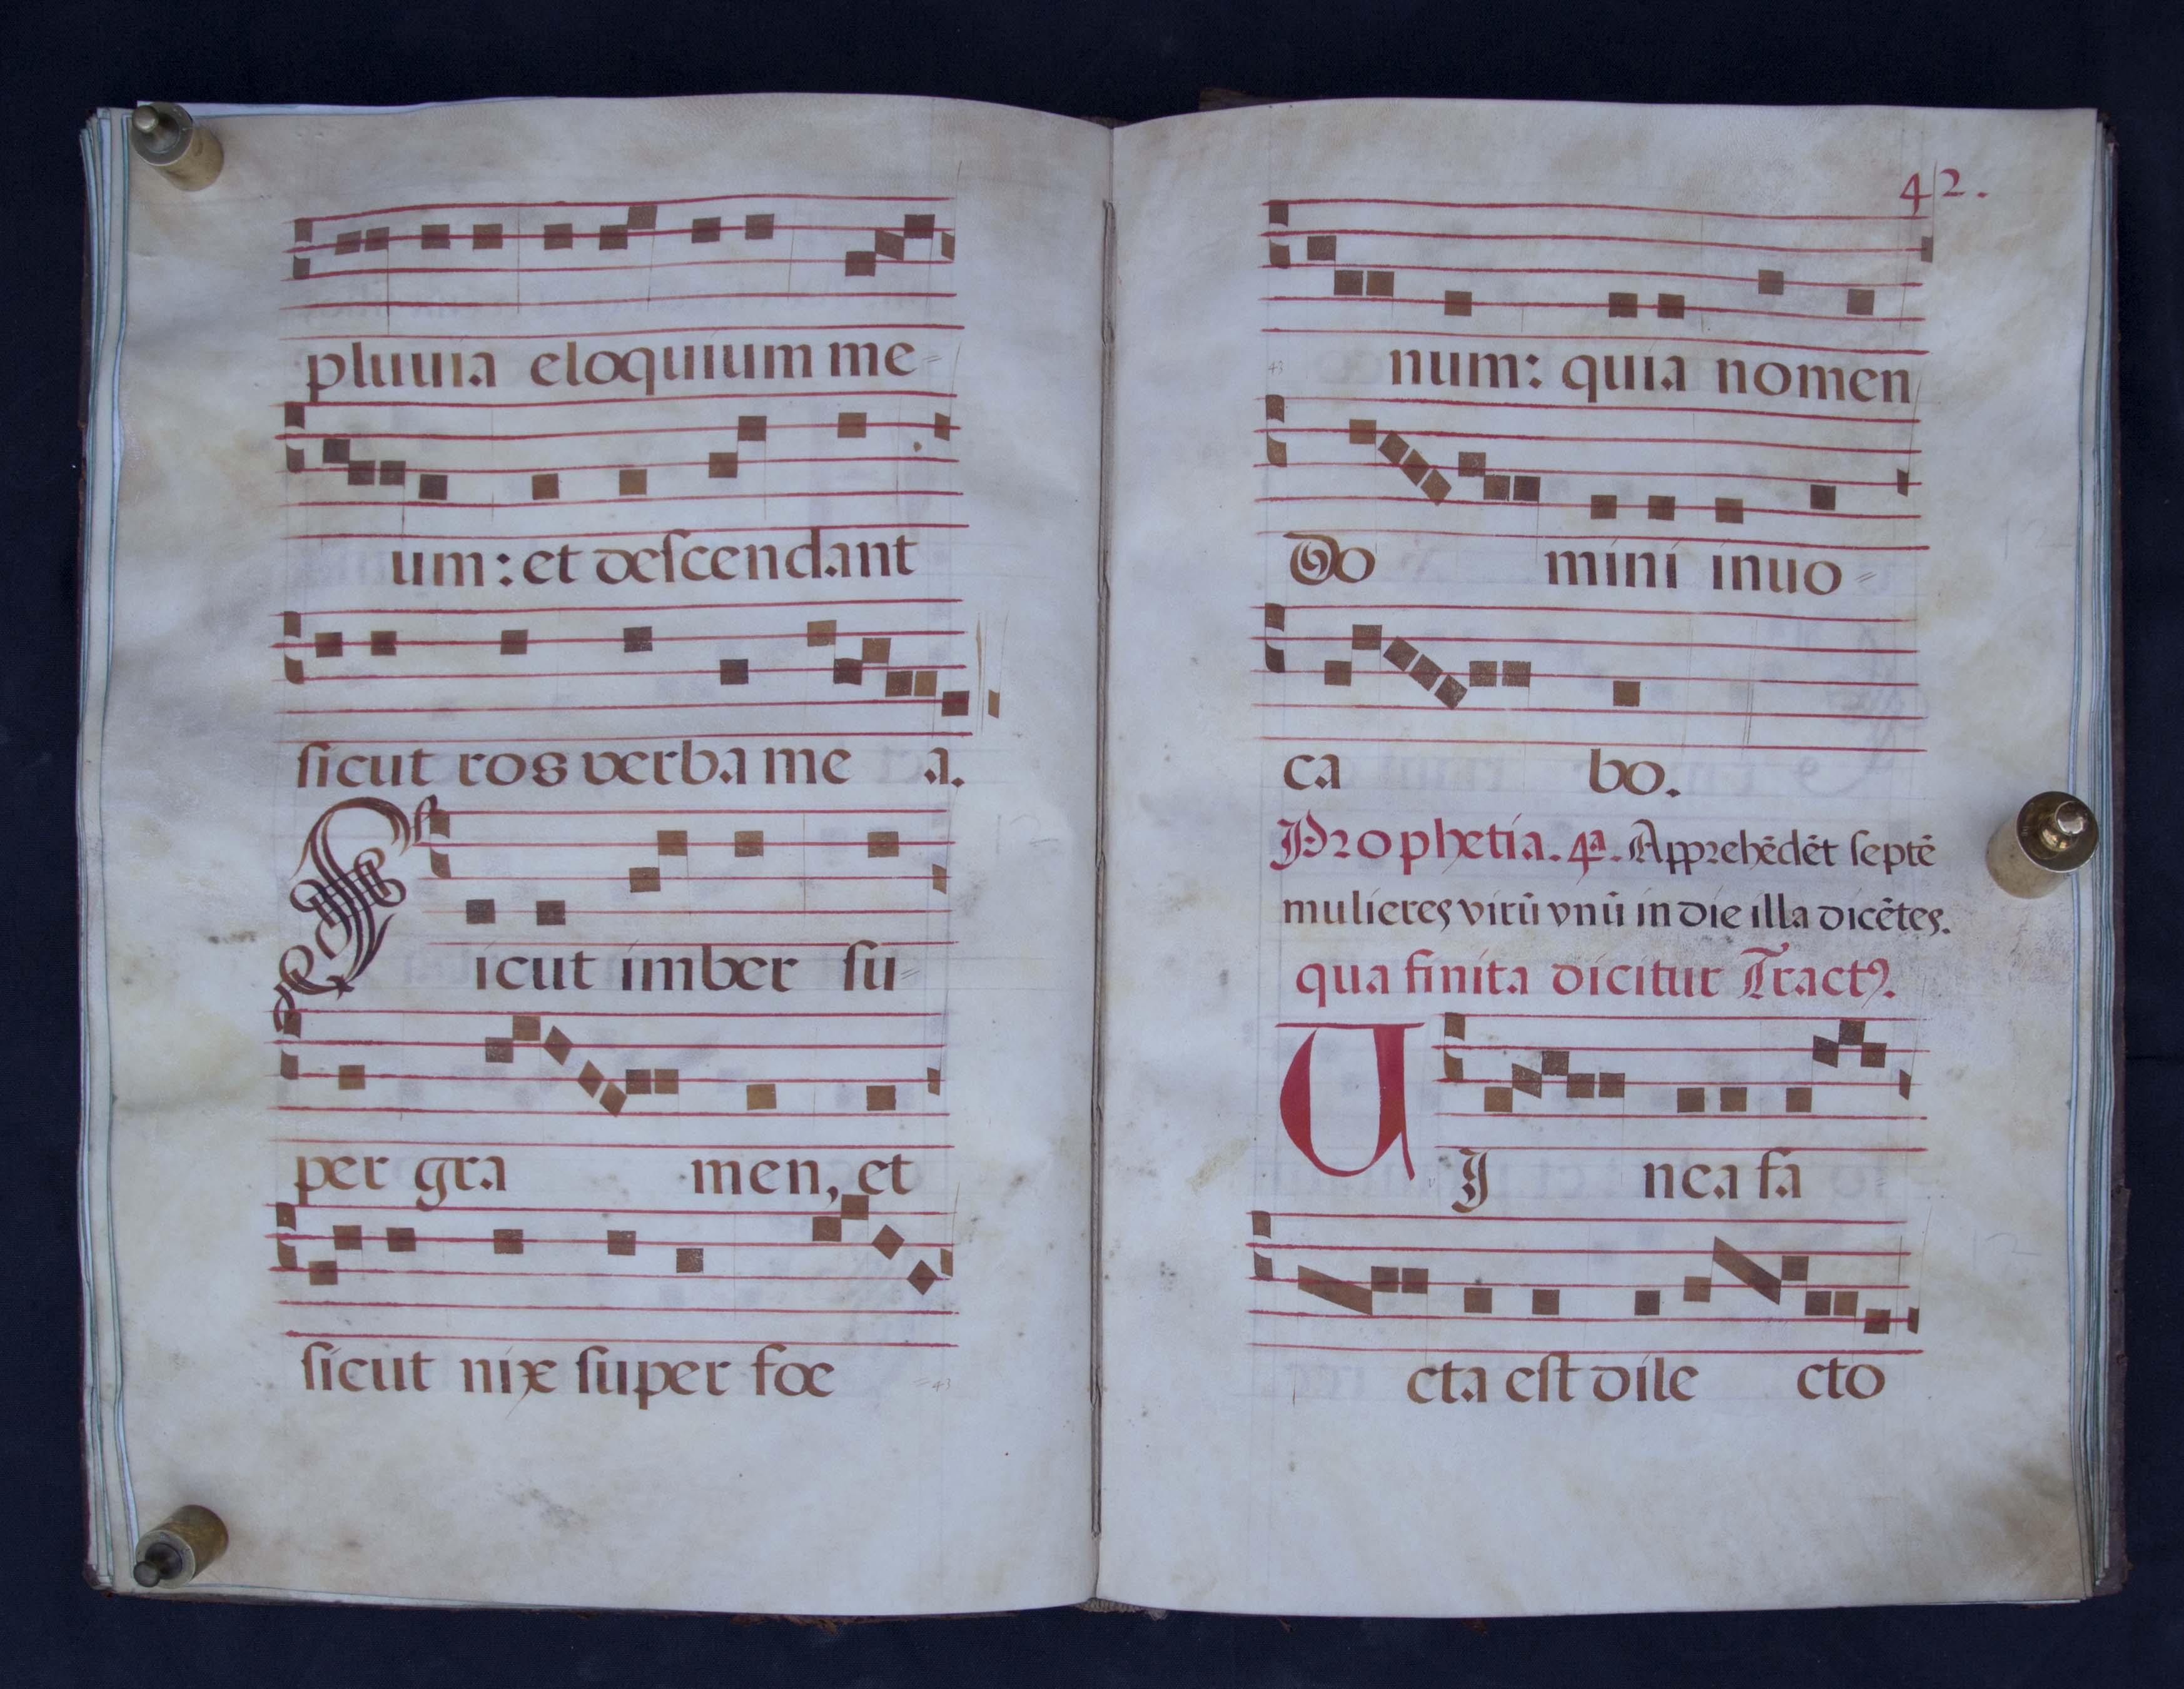 pluuia eloquium me=
um: et descendant
sicut ros verba me a.
Sicut imber su=
per gra men, et
sicut nix super foe
42.
num: quia nomen
Do mini inuo=
ca bo.
Prophetia. 4ª. Apprehēdēt septē
mulieres virū vnū in die illa dicētes.
qua finita dicitur Tractꝯ.
VI nea fa
cta est dile cto